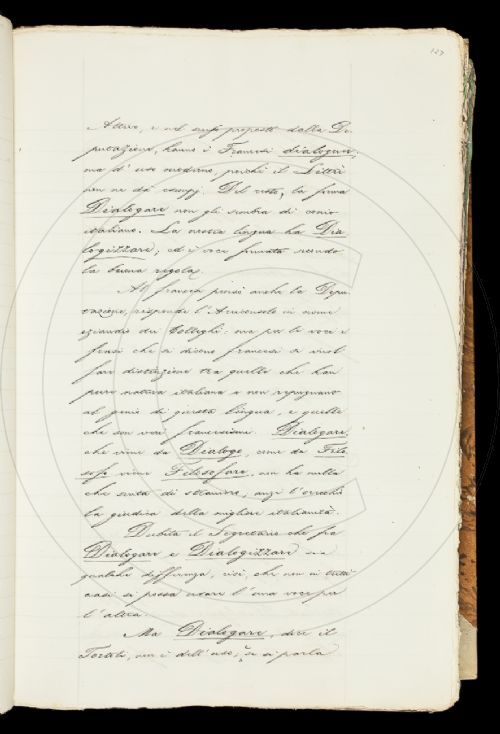 127
Attivo, e nel senso proposto dalla De
putazione, hanno i Francesi dialoguer,
ma d'uso moderno, perchè il Littré
non ne dà esempj. Del resto, la forma
Dialogare non gli sembra di conio
italiano. La nostra lingua ha Dia
logizzare, ed è voce formata secondo
la buona regola.
Al francese pensò anche la Depu
tazione, risponde l'Arciconsolo in nome
eziandio dei Colleghi: ma per le voci e
frasi che si dicono francesi si vuol
fare distinzione tra quelle che han
pure natura italiana e non repugnano
al genio di questa lingua, e quelle
che son veri francesismi. Dialogare,
che viene da Dialogo, come da Filo
sofo viene Filosofare, non ha nulla
che senta di straniero, anzi l'orecchio
la giudica della migliore italianità.
Dubita il Segretario che fra
Dialogare e Dialogizzare sia
qualche differenza, così, che non in tutti
casi si possa usare l'una voce per
l'altra.
Ma Dialogare, dice il
Tortoli, non è dell'uso; e si parla